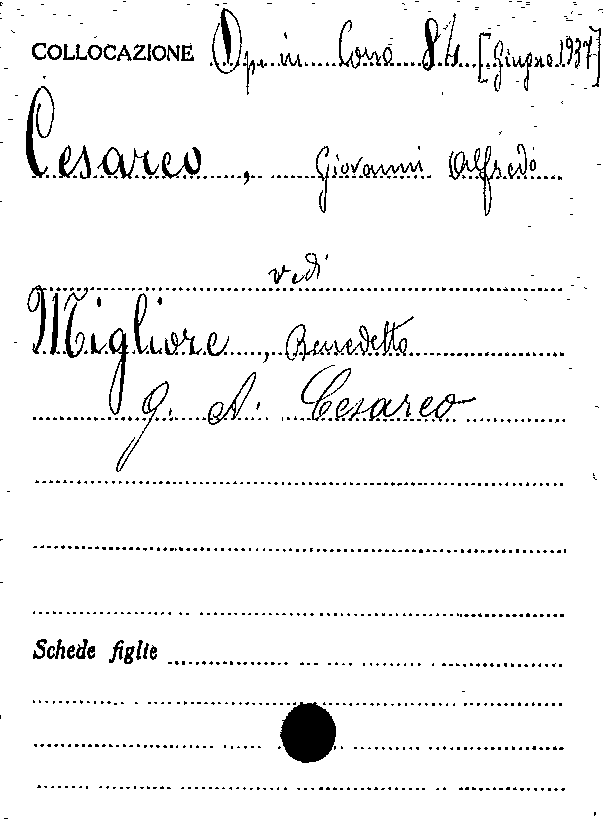 COLLOCAZIONE Op. in Corso 84 [Giugno 1937]
Cesareo, Giovanni Alfredo
vedi
Migliore, Benedetto
G. A. Cesareo
Schede figlie